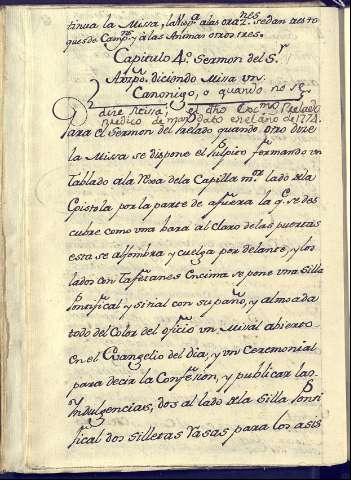 tinua la Missa, la Nosp.ª a las oraz.nes se dan tres to
ques de Camp.ª y a las Animas otros tres.
Capitulo 4.º Sermon del S.r
Arzpo. diciendo Missa vn
Canonigo, o quando no se
dize Missa; el dho Exc.mo Prelado
predico de mandato en el año de 1774.
Para el sermon del Prelado quando otro dize
la Missa se dispone el Pulpito formando vn
Tablado a la Rexa de la Capilla m.or lado de la
Epistola por la parte de afuera la q.e se des
cubre como vna bara al claro de las puertas
esta se alfombra, y cuelga por delante, y los
lados con Tafetanes Encima se pone vna Silla
Pontifical y sitial con su paño, y almoada
todo del Color del oficio vn Misal abierto
en el Evangelio del dia, y vn Ceremonial
para decir la Confesion, y publicar las
Yndulgencias, dos al lado de la Silla Ponti
fical dos silletas Rasas para los asis